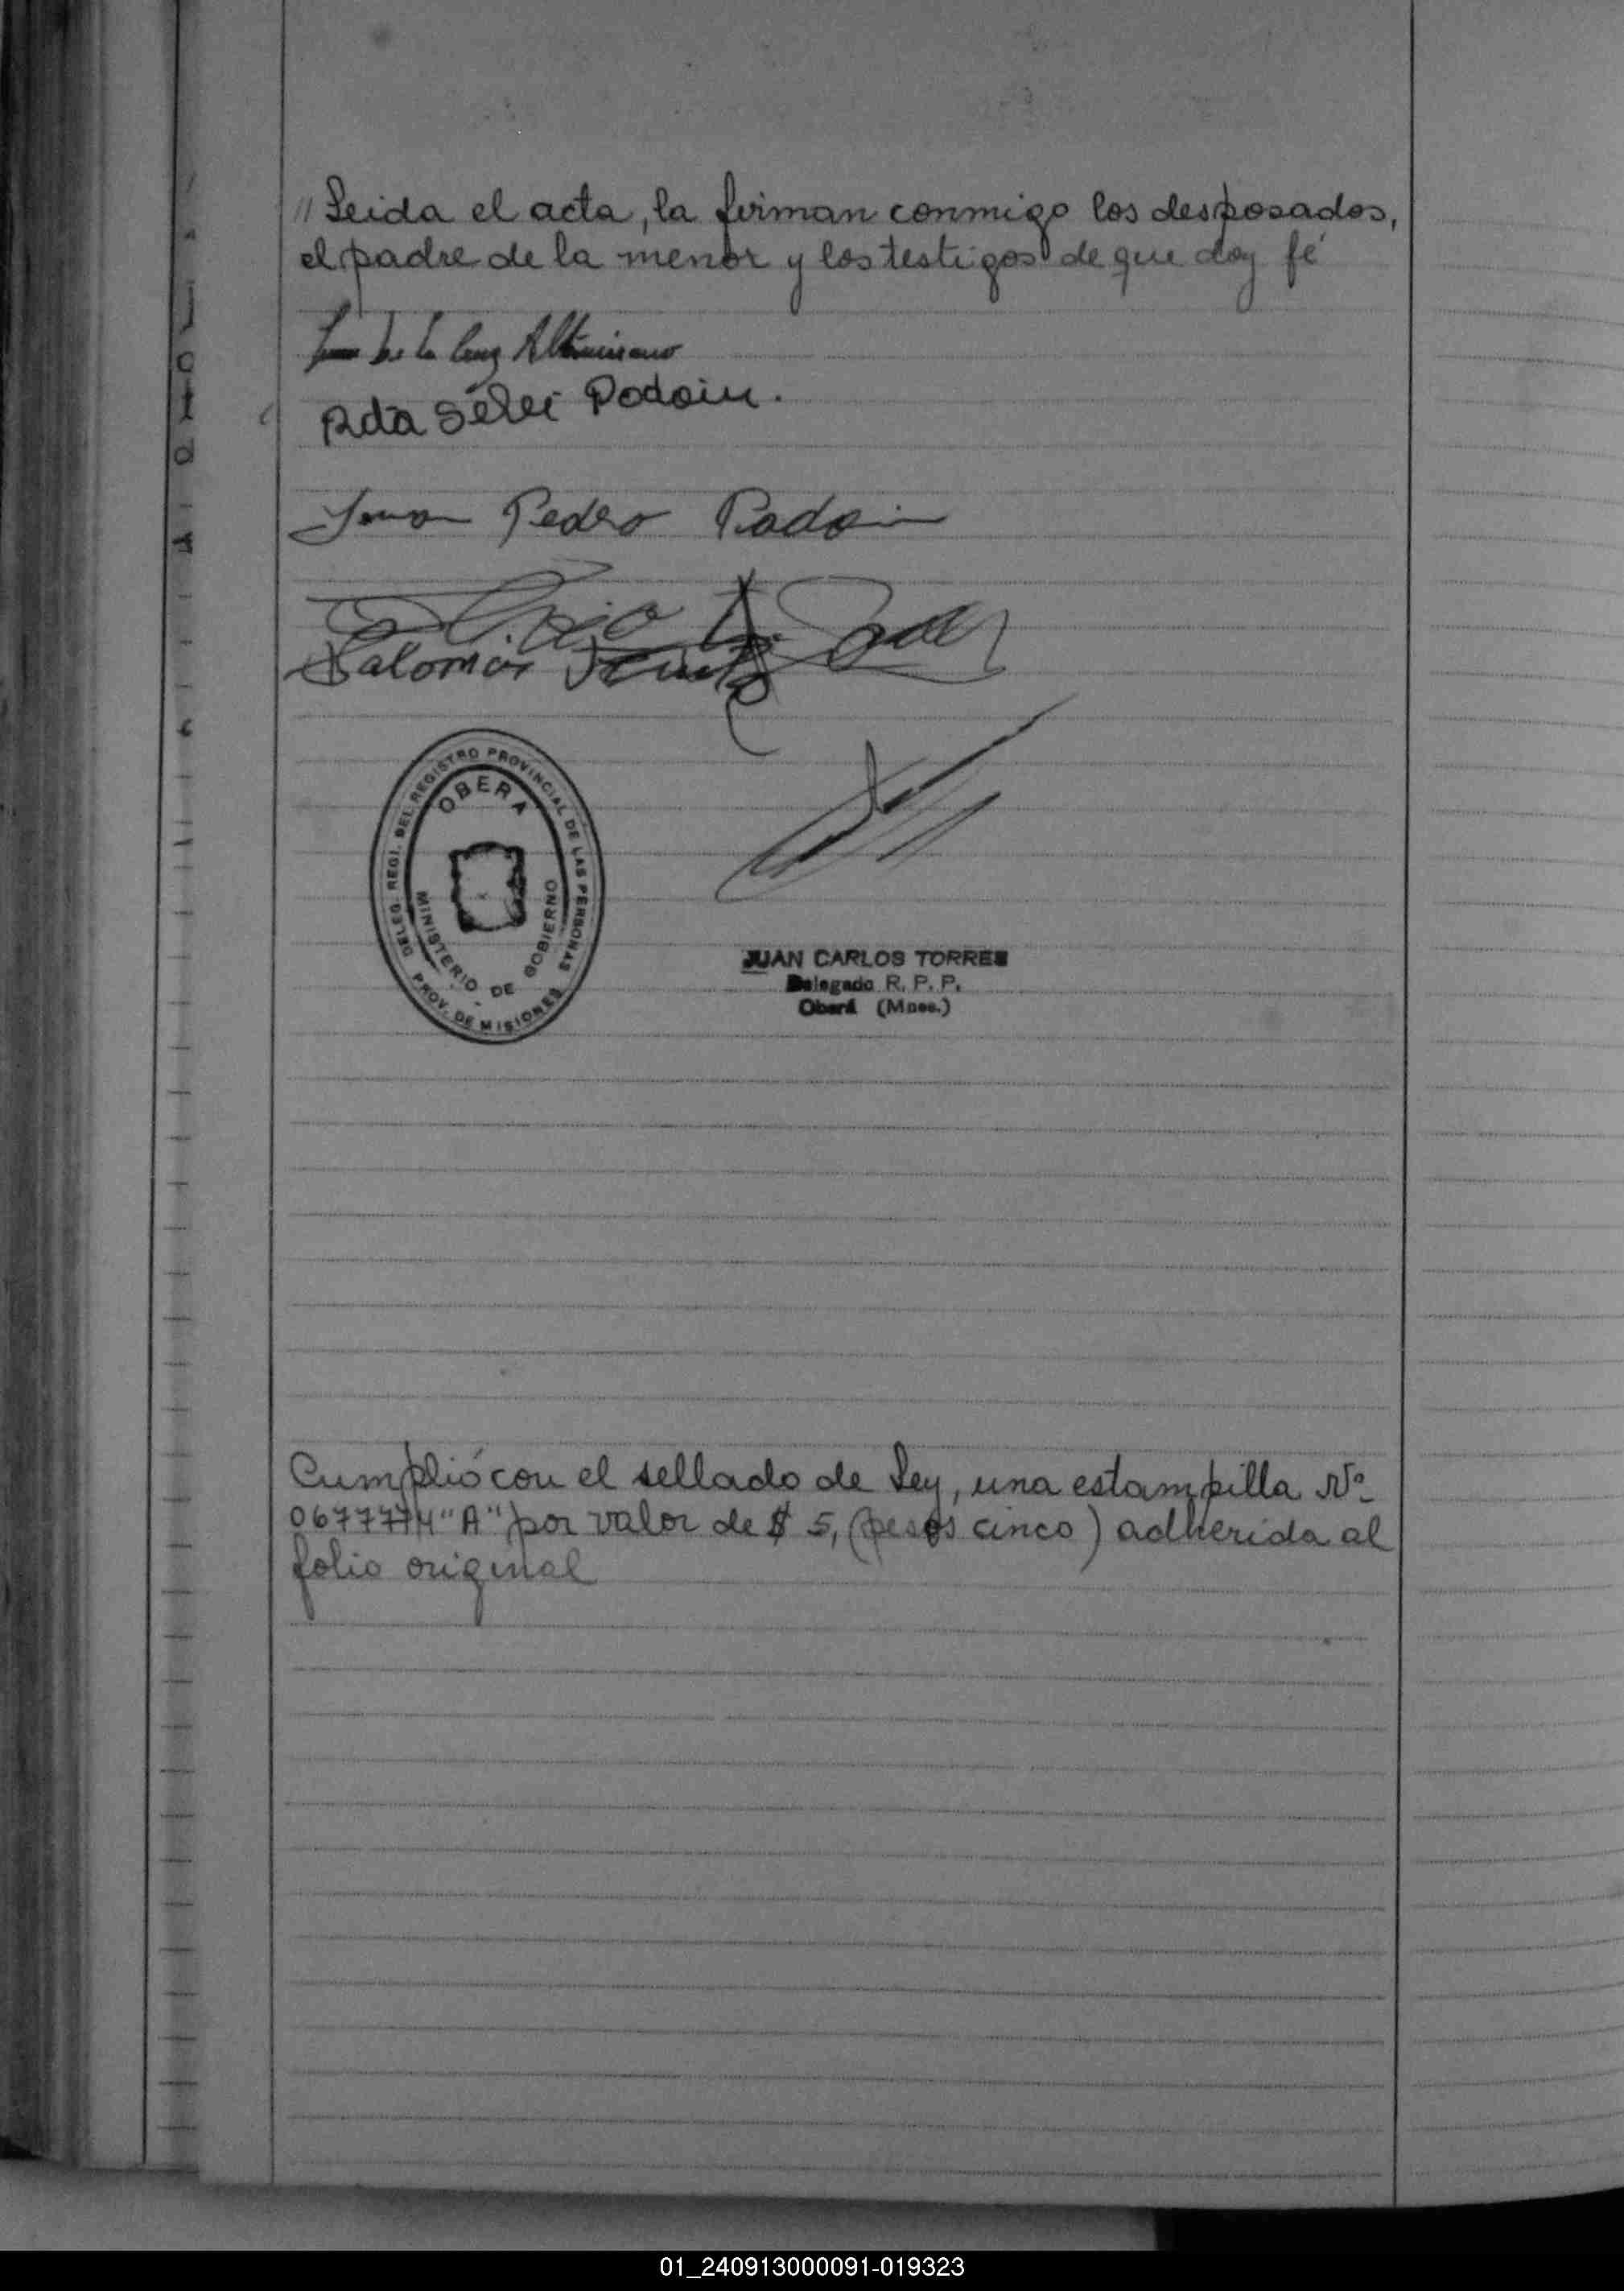 // Leida el acta, la firman conmigo los desposados,
el padre de la menor y los testigos de que doy fé
Juan de la Cruz Altamirano
Rita Selei Padoin.
Juan Pedro Padoin
Salomón
DELEG. REGI. DEL REGISTRO PROVINCIAL DE LAS PERSONAS
OBERA
MINISTERIO DE GOBIERNO
PROV. DE MISIONES
JUAN CARLOS TORRES
Delegado R. P. P.
Oberá (Mnes.)
Cumplió con el sellado de Ley, una estampilla Nº
0677774 "A" por valor de $ 5, (pesos cinco) adherida al
folio original
01_240913000091-019323